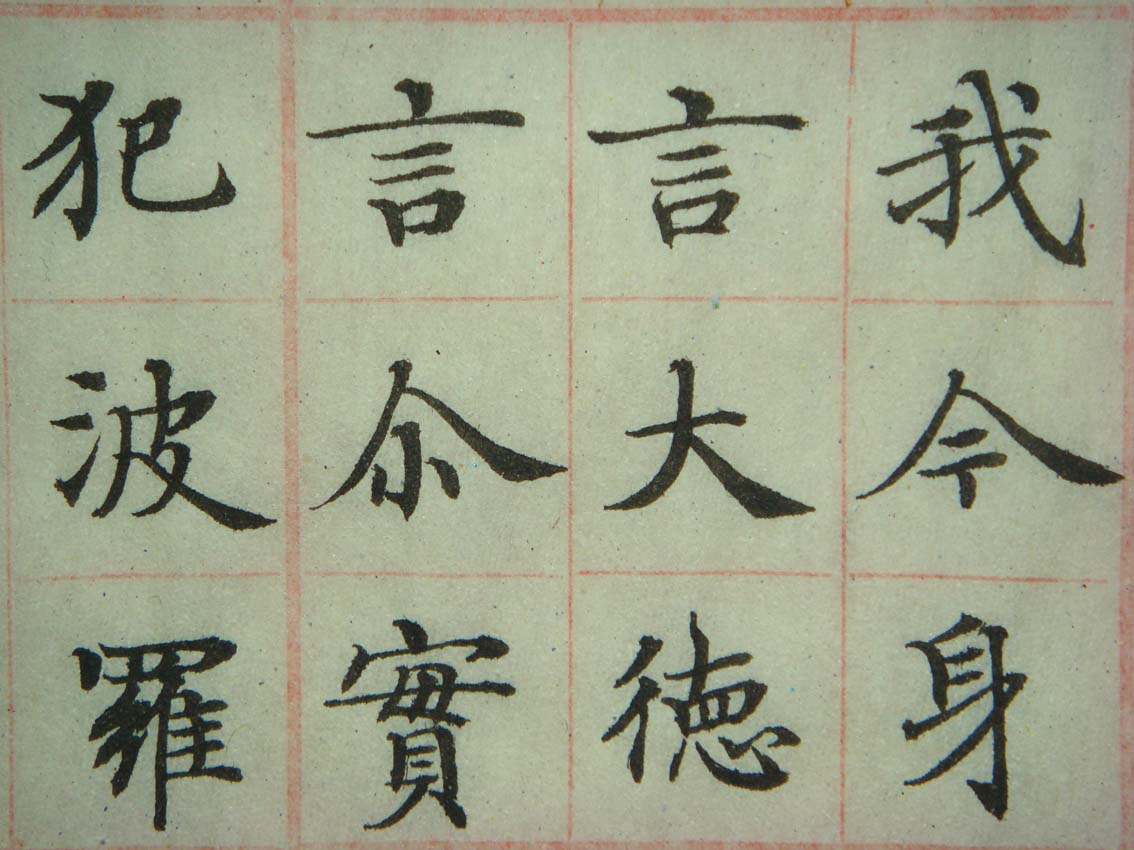 我今身
言大徳
言尒實
犯波羅